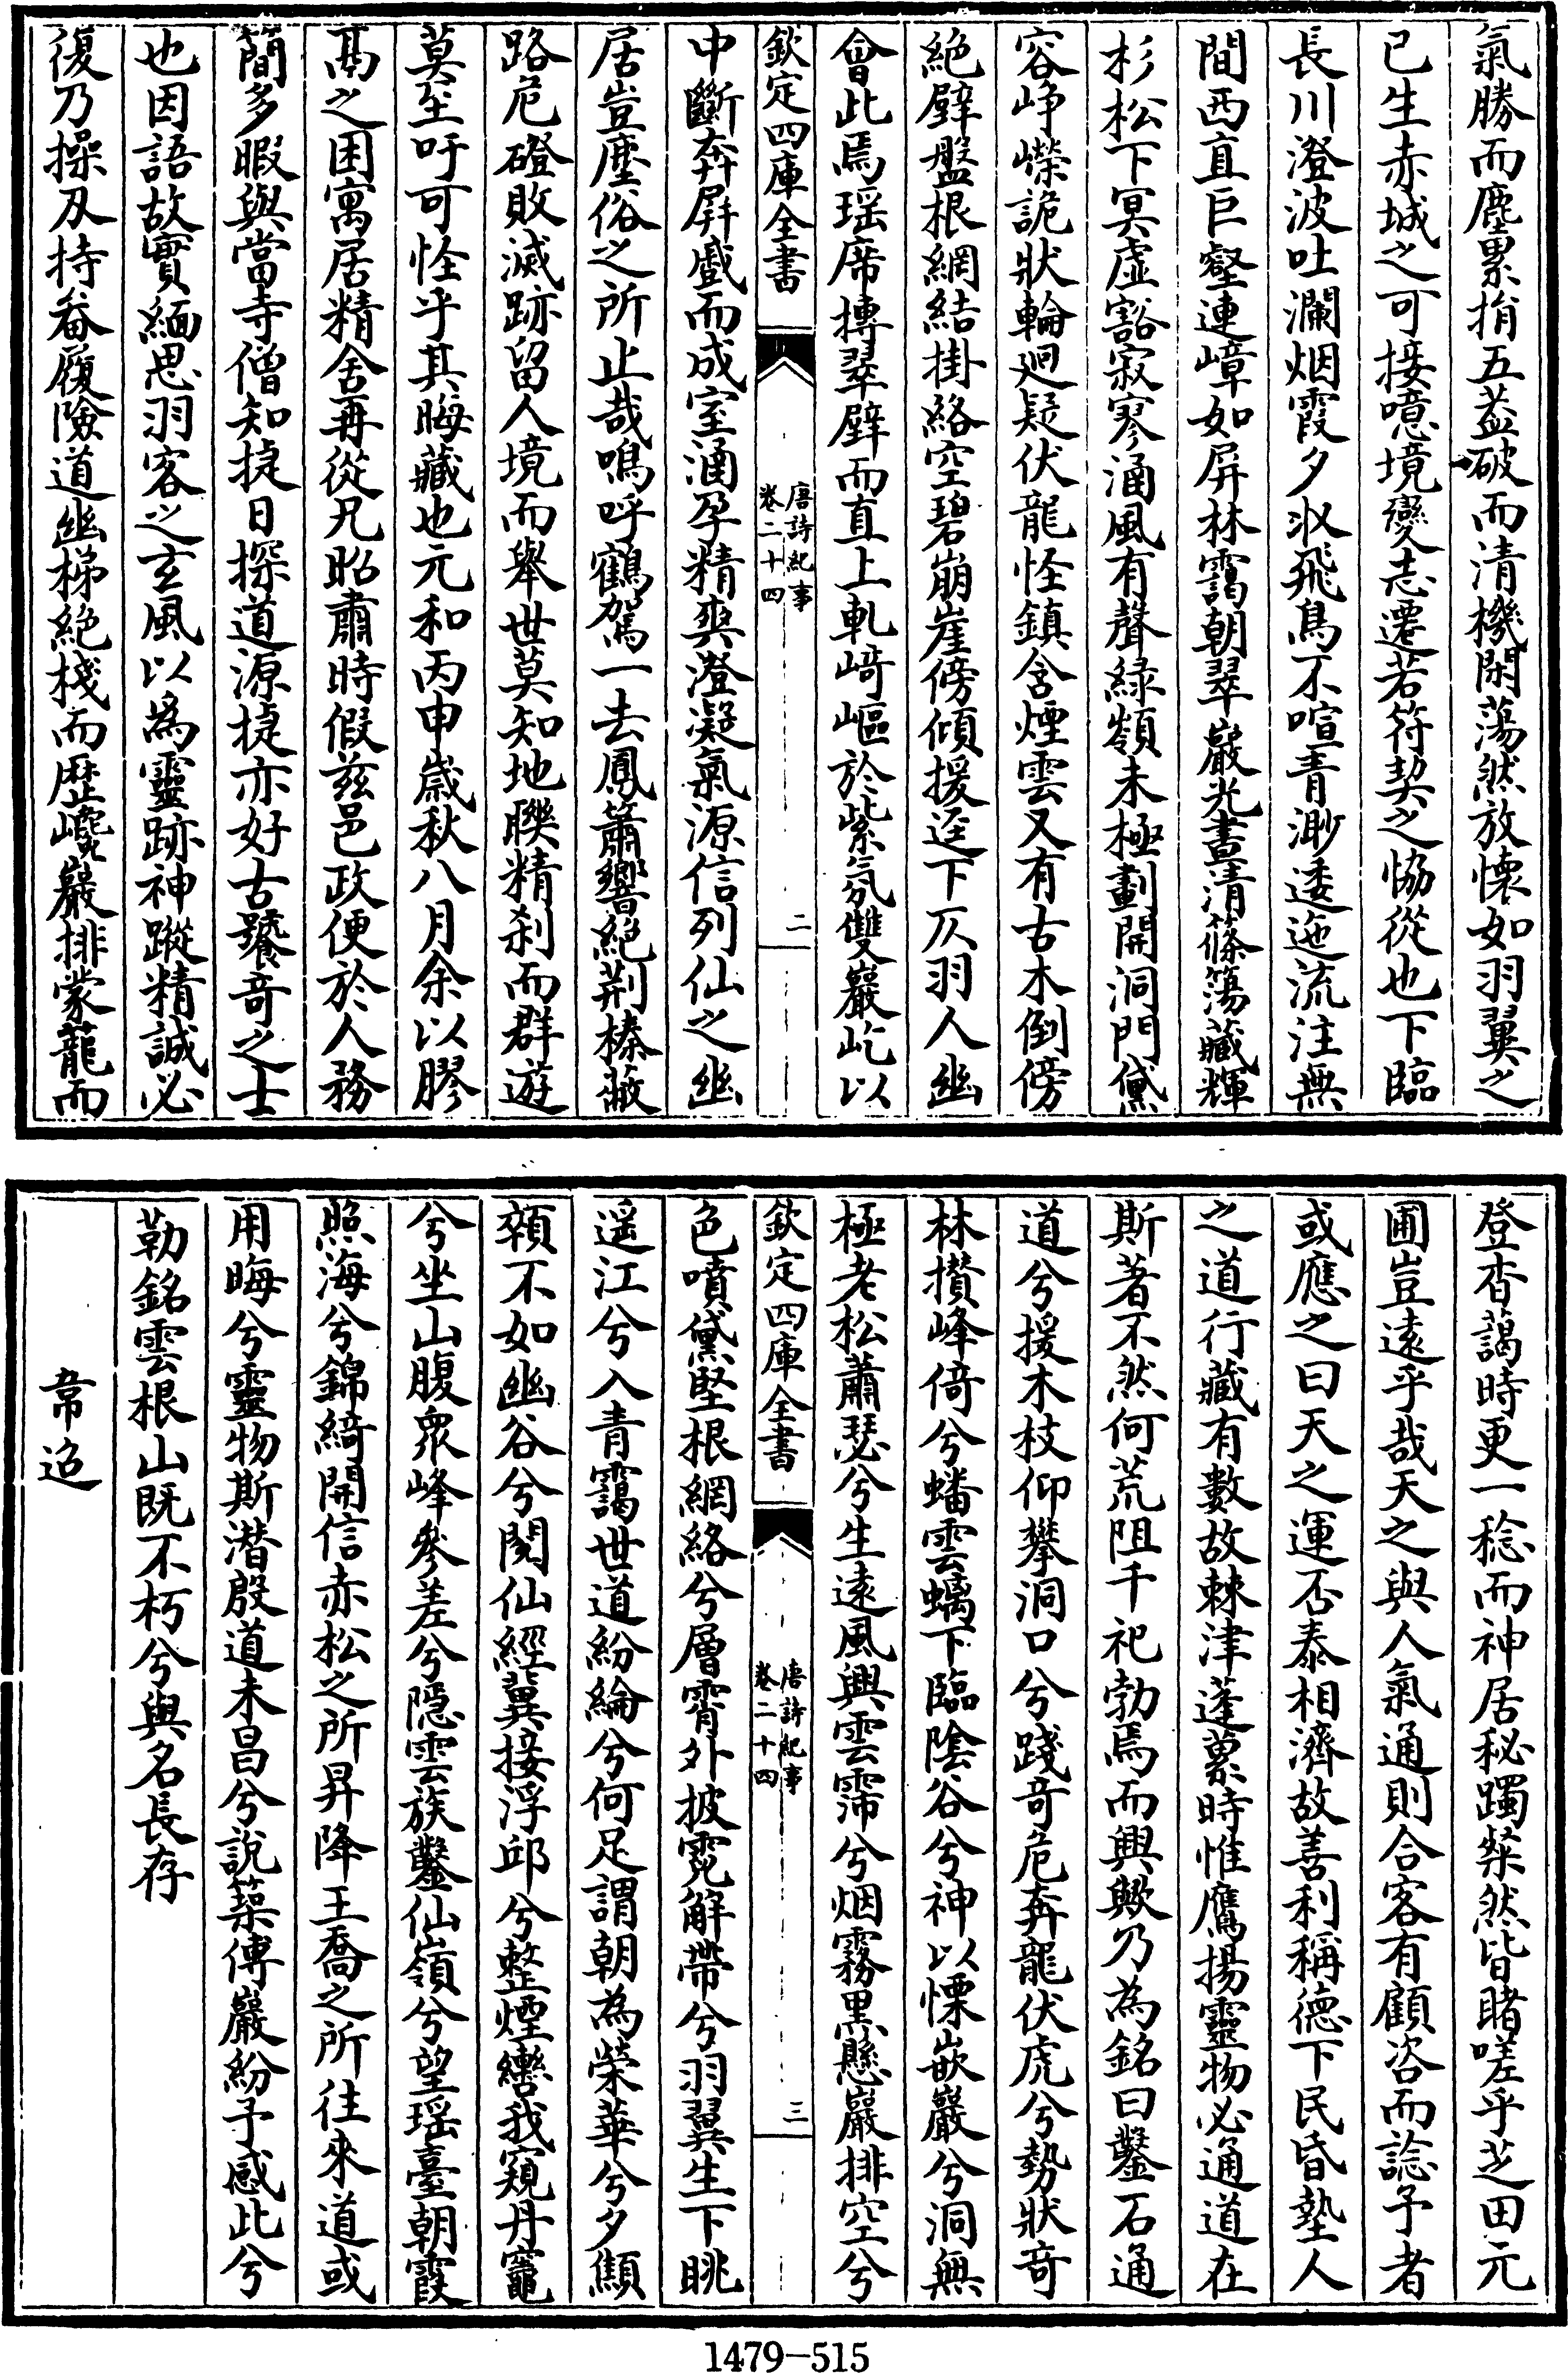 氣勝而塵累捐五葢破而清機閑蕩然放懷如羽翼之
已生赤城之可接噫境變志遷若符契之恊從也下臨
長川澄波吐瀾烟霞夕收飛鳥不喧青渺逶迤流注無
間西直巨壑連嶂如屏林靄朝翠巖光晝清篠簜藏輝
杉松下冥虛豁寂寥涌風有聲緑嶺未極劃開洞門黛
容崢嶸詭狀輪廻疑伏龍怪鎮含煙雲又有古木倒傍
絶壁盤根網結掛絡空碧崩崖傍傾援逕下仄羽人幽
會此焉瑶席摶翠壁而直上軋﨑嶇於紫氛雙巖屹以
欽定四庫全書
唐詩紀事
卷二十四
二
中斷奔屏戲而成室涵孕精爽澄凝氣源信列仙之幽
居豈塵俗之所止哉嗚呼鶴駕一去鳳簫響絶荆榛蔽
路危磴敗滅跡留人境而舉世莫知地聯精刹而群遊
莫至吁可怪乎其晦藏也元和丙申嵗秋八月余以膠
鬲之困寓居精舍再從兄昭肅時假兹邑政便於人務
簡多暇與當寺僧知捷日探道源捷亦好古饕竒之士
也因語故實緬思羽客之玄風以為靈跡神蹤精誠必
復乃操刄持畚履險道幽梯絶棧而歴巉巖排蒙蘢而
登杳藹時更一稔而神居秘躅粲然皆睹嗟乎芝田元
圃豈逺乎哉天之與人氣通則合客有顧咨而諗予者
或應之曰天之運否泰相濟故善利稱德下民昏墊人
之道行藏有數故棘津蓬蔂時惟鷹揚靈物必通道在
斯著不然何荒阻千祀勃焉而興歟乃為銘曰鑿石通
道兮援木枝仰攀洞口兮踐竒危奔龍伏虎兮勢狀竒
林攅峰倚兮蟠雲螭下臨陰谷兮神以慄嵌巖兮洞無
極老松蕭瑟兮生逺風興雲霈兮烟霧黒懸巖排空兮
欽定四庫全書
唐詩紀事
卷二十四
三
色噴黛堅根網絡兮層霄外披霓解帶兮羽翼生下眺
遥江兮入青靄世道紛綸兮何足謂朝為榮華兮夕顦
顇不如幽谷兮閲仙經冀接浮邱兮整煙轡我窺丹竈
兮坐山腹衆峰參差兮隱雲族鑿仙嶺兮望瑶臺朝霞
照海兮錦綺開信赤松之所昇降王喬之所往來道或
用晦兮靈物斯潜殷道未昌兮說築傅巖紛予感此兮
勒銘雲根山既不朽兮與名長存
韋迢
1479-515